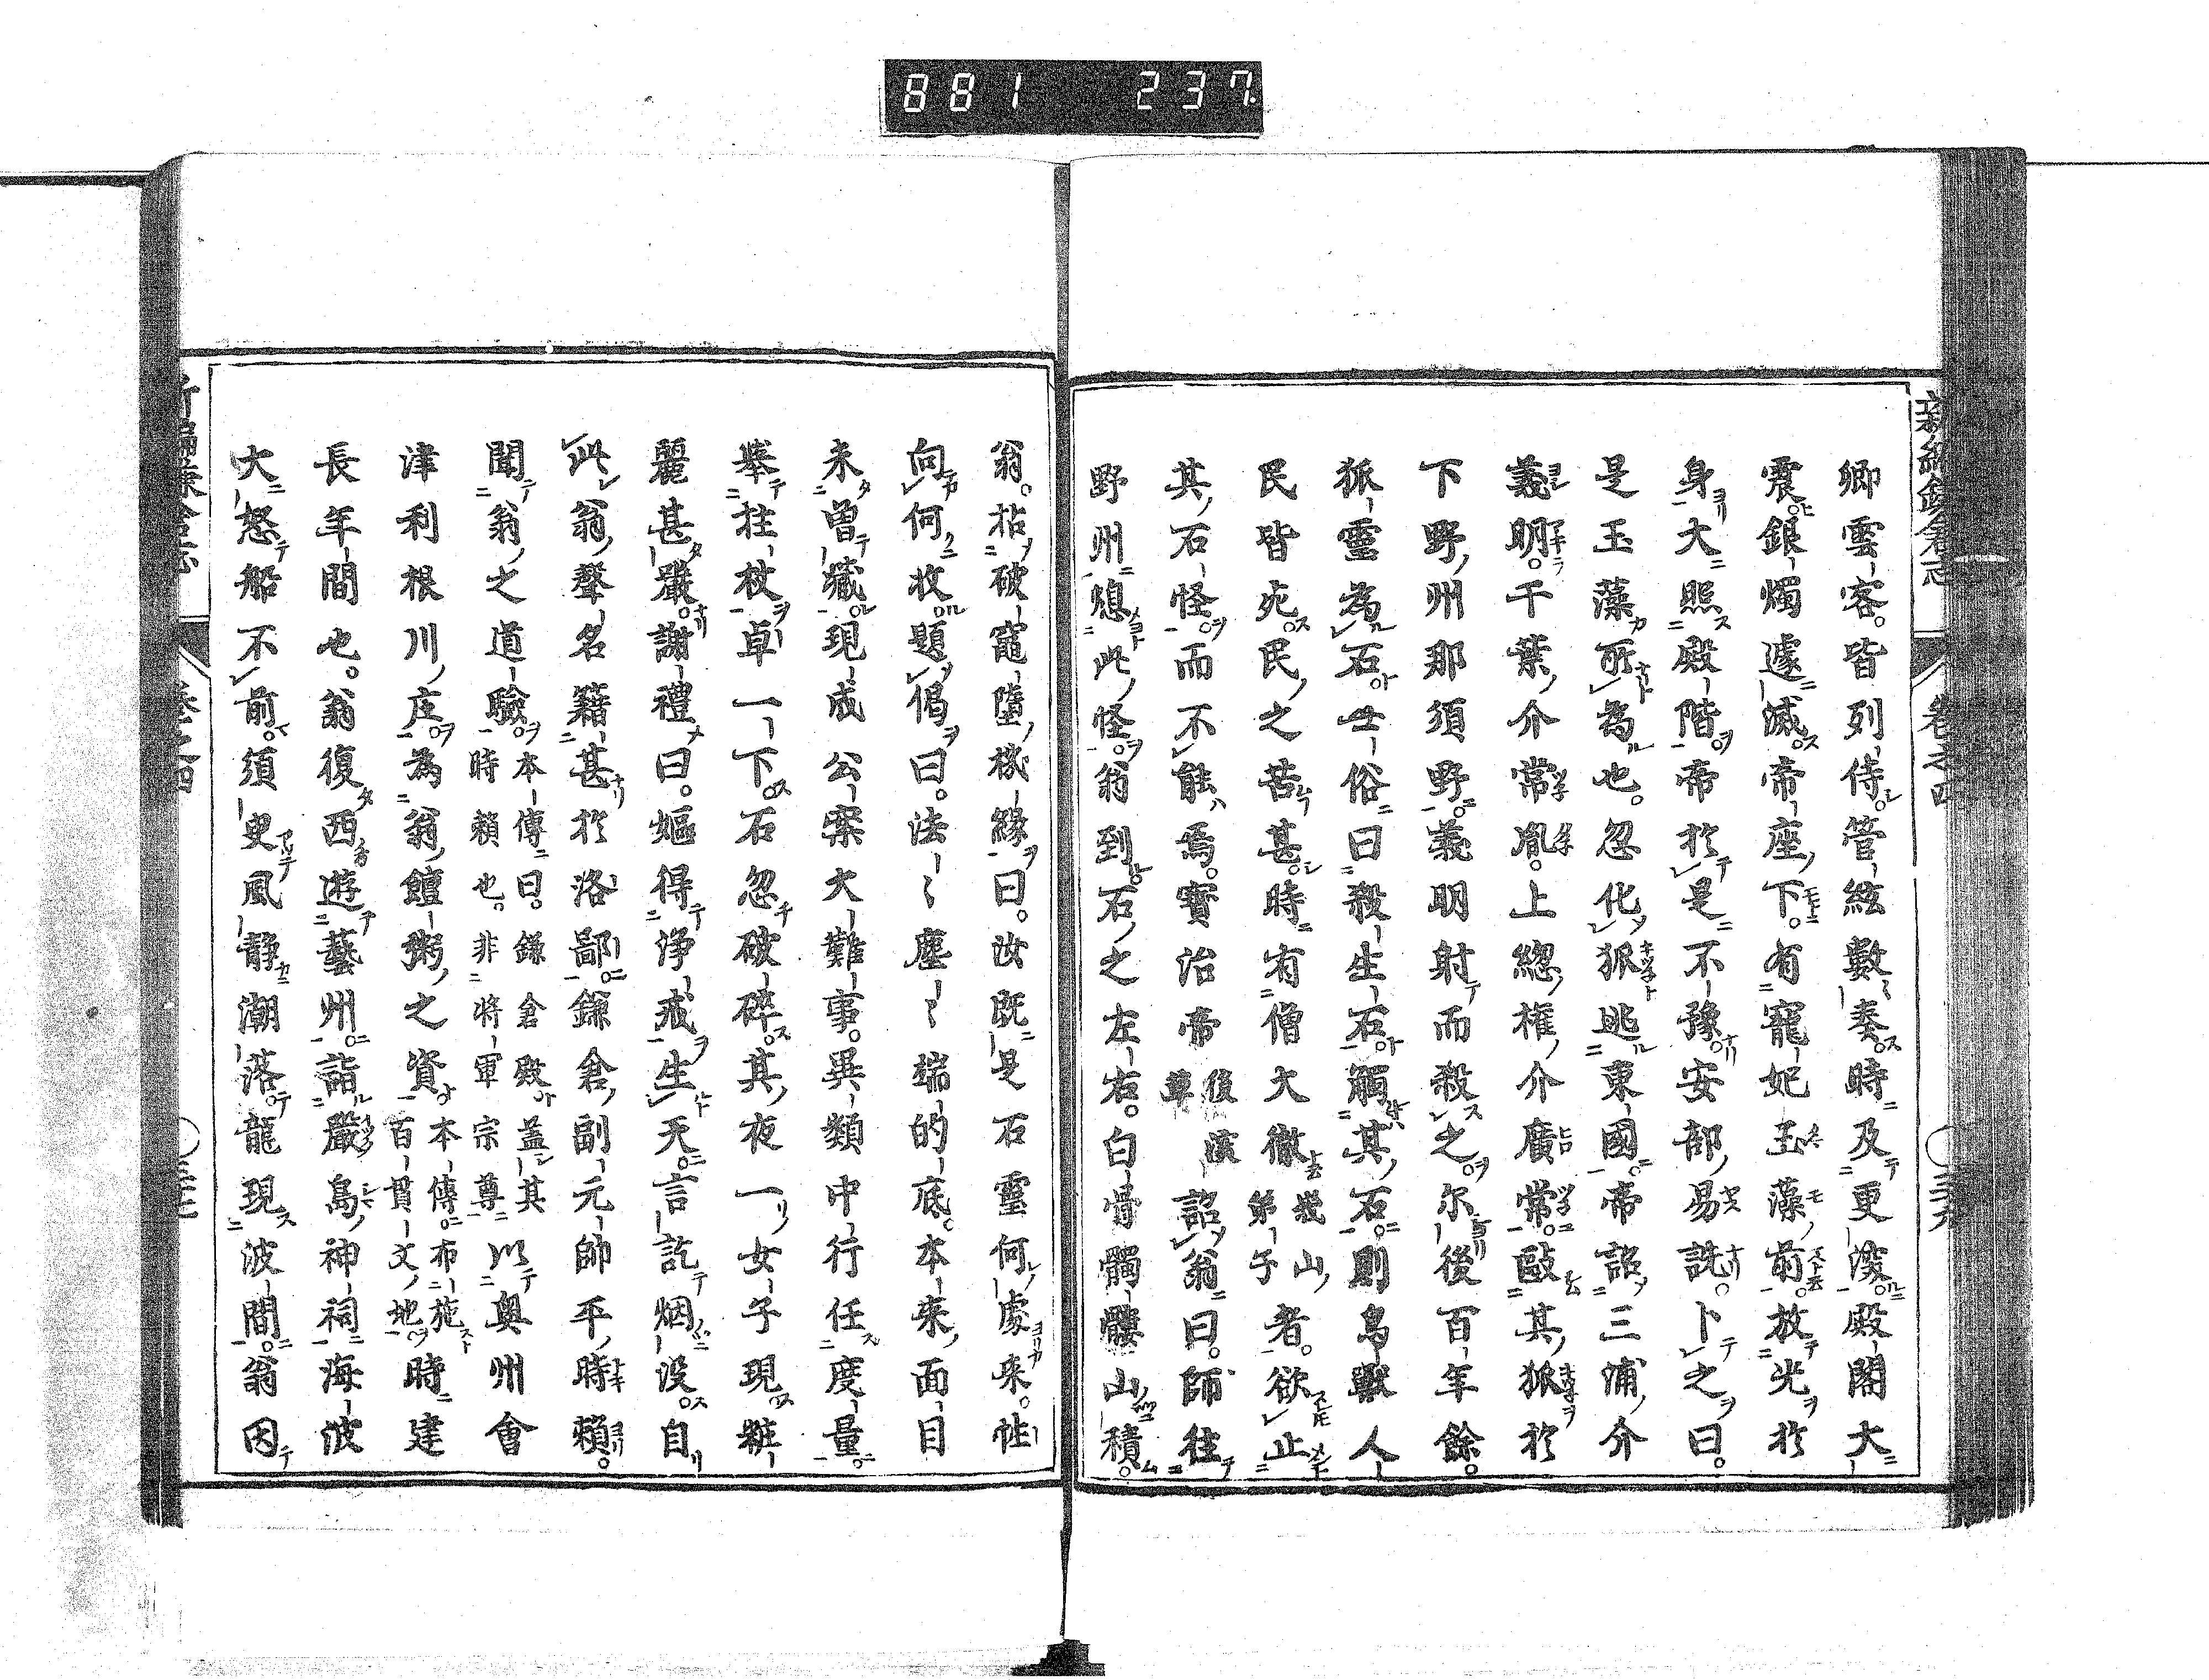 881 237
新編鎌倉志 卷之四
卿雲客。皆列侍。管絃數奏。時及更深殿閣大
震。銀燭遽滅。帝座下。有寵妃玉藻前。放光於
身大照殿階。帝於是不豫。安部易詵。卜之曰。
是玉藻所為也。忽化狐逃東國。帝詔三浦介
義明。千葉介常胤。上總權介廣常。敺其狐於
下野州那須野。義明射而殺之。尔後百年餘。
狐靈為石。世俗曰殺生石。觸其石。則鳥獸人
民皆死。民之苦甚。時有僧大徹峩山弟子者。欲止
其石怪。而不能焉。寶治帝後深草詔翁曰。師往
野州熄此怪。翁到石之左右。白骨髑髏山積。
翁。拈破竈墮機緣曰。汝既是石靈何處來。性
向何收。題偈曰。法〻塵〻端的底。本來面目
未曾藏。現成公案大難事。異類中行任度量。
舉拄杖卓一下。石忽破碎。其夜一女子現粧
麗甚嚴。謝禮曰。嫗得淨戒生天。言訖烟没。自
此翁聲名籍甚於洛鄙。鎌倉副元帥平時賴。
聞翁之道驗。本傳曰。鎌倉殿。蓋其時賴也。非將軍宗尊以奥州會
津利根川庄。為翁饘粥之資。本傳布施百貫文地時建
長年間也。翁復西遊藝州。詣嚴島神祠海波
大怒船不前。須臾風静潮落。龍現波間。翁因
卷之四